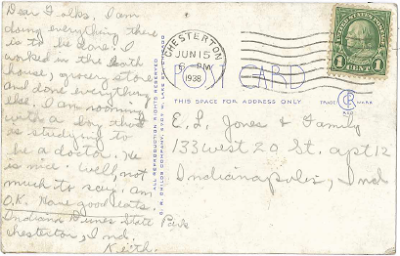 Dear Folks. I am
doing everything there
is to be done. I
worked in the bath
house, grocery store
and done everything
else. I am rooming
with a boy that
is studying to
be a doctor. He
is nice. Well, not
much to say. am
O.K. Have good eats
Indiana Dunes State Park
Chesterton, Ind.
Keith.
CHESTERTON
JUN 15
PM
1938
POST CARD
THIS SPACE FOR ADDRESS ONLY
TRADE CR MARK
ALL REPRODUCTION RIGHTS RESERVED
1 CENT 1
E. L. Jones & Family
133 West 20 St. apt 12
Indianapolis, Ind